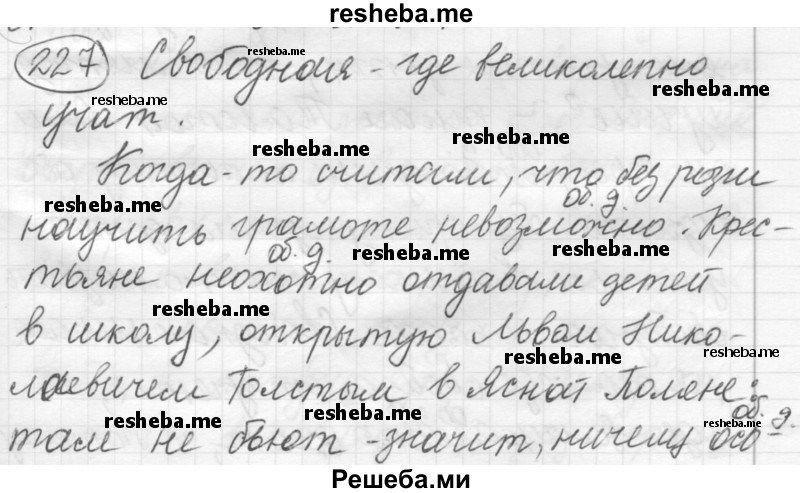 resheba.me
227 Свободная - где великолепно
resheba.me
resheba.me
resheba.me
учат.
resheba.me
resheba.me
Когда-то считали, что без розги
resheba.me
об. д.
научить грамоте невозможно. Крес-
об. д.
resheba.me
resheba.me
тьяне неохотно отдавали детей
resheba.me
в школу, открытую Львом Нико-
resheba.me
resheba.me
лаевичем Толстым в Ясной Поляне:
resheba.me
resheba.me
об. д.
resheba.me
там не бьют - значит, ничему осо-
Решеба.ми